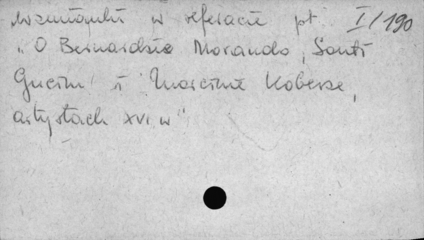 wzmianka w referacie pt. I/190
„O Bernardzie Morando, Santi
Gucim i Marcinie Koberze,
artystach XVI w"